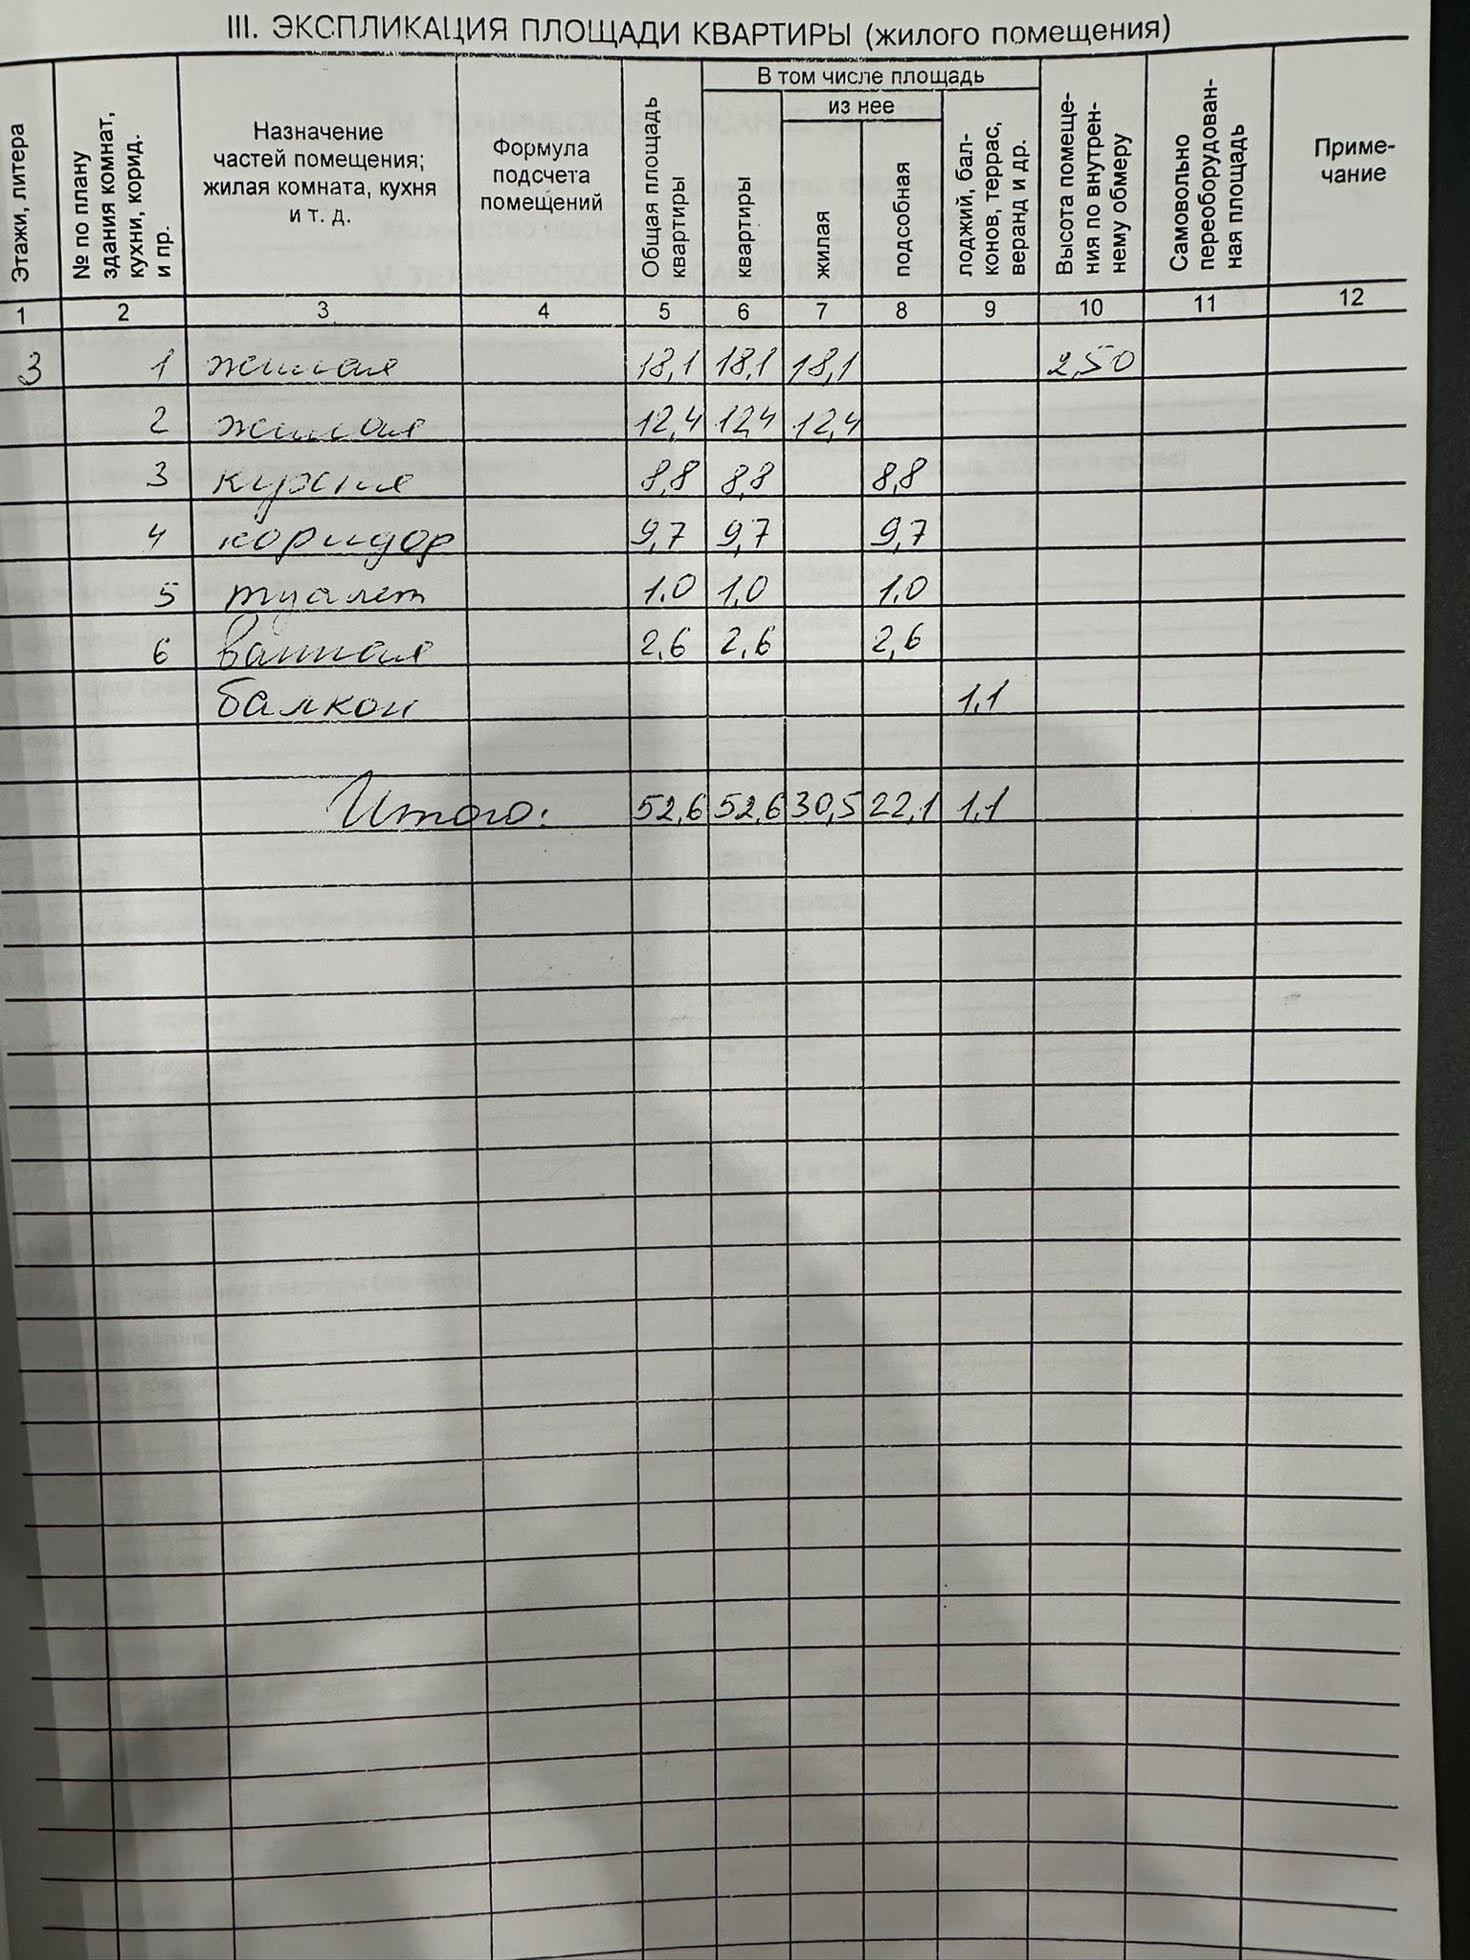 III. ЭКСПЛИКАЦИЯ ПЛОЩАДИ КВАРТИРЫ (жилого помещения)
Этажи, литера
№ по плану
здания комнат,
кухни, корид.
и пр.
Назначение
частей помещения;
жилая комната, кухня
и т. д.
Формула
подсчета
помещений
Общая площадь
квартиры
В том числе площадь
из нее
квартиры
жилая
подсобная
лоджий, бал-
конов, террас,
веранд и др.
Высота помеще-
ния по внутрен-
нему обмеру
Самовольно
переоборудован-
ная площадь
Приме-
чание
1 2 3 4 5 6 7 8 9 10 11 12
3 1 жилая 18,1 18,1 18,1 2,50
2 жилая 12,4 12,4 12,4
3 кухня 8,8 8,8 8,8
4 коридор 9,7 9,7 9,7
5 туалет 1.0 1,0 1.0
6 ванная 2,6 2,6 2,6
балкон 1,1
Итого: 52,6 52,6 30,5 22,1 1,1